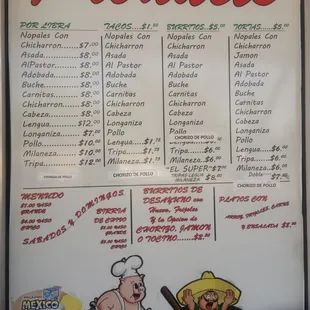 POR LIBRA
Nopales Con
Chicharron......$7.00
Asada..........$8.00
AlPastor.......$8.00
Adobada........$8.00
Buche..........$8.00
Carnitas.......$8.00
Chicharron.....$8.00
Cabeza.........$8.00
Lengua........$12.00
Longaniza......$7.00
Pollo.........$10.00
Milaneza......$10.00
Tripa.........$12.00
CHORIZO DE POLLO
TACOS....$1.50
Nopales Con
Chicharron
Asada
Al Pastor
Adobada
Buche
Carnitas
Chicharron
Cabeza
Longaniza
Pollo
Lengua....$1.75
Tripa.....$1.75
Milaneza..$1.75
CHORIZO DE POLLO
BURRITOS.$5.00
Nopales Con
Chicharron
Asada
Al Pastor
Adobada
Buche
Carnitas
Chicharron
Cabeza
Longaniza
Pollo
CHORIZO DE POLLO
Lengua....$6.
Tripa.....$6.
Milaneza..$6.
"EL SUPER"
TRIPAS LEGUA
MILANEZA
CHORIZO DE POLLO
TORTAS....$5.00
Nopales Con
Chicharron
Jamon
Asada
Al Pastor
Adobada
Buche
Carnitas
Chicharron
Cabeza
Longaniza
Pollo
Lengua....$6.
Tripa.....$6.
Milaneza..$6.
Doble
CHORIZO DE POLLO
MENUDO
GRANDE
CHICO
SABADOS Y DOMINGOS
BIRRIA
DE CHIVO
GRANDE
CHICO
BURRITOS DE
DESAYUNO con
Huevo, Frijoles
Y la Opcion de
CHORIZO, JAMON
O TOCINO
PLATOS CON
ARROZ, FRIJOLES, CARNE
Y ENSALADA
MEXICO